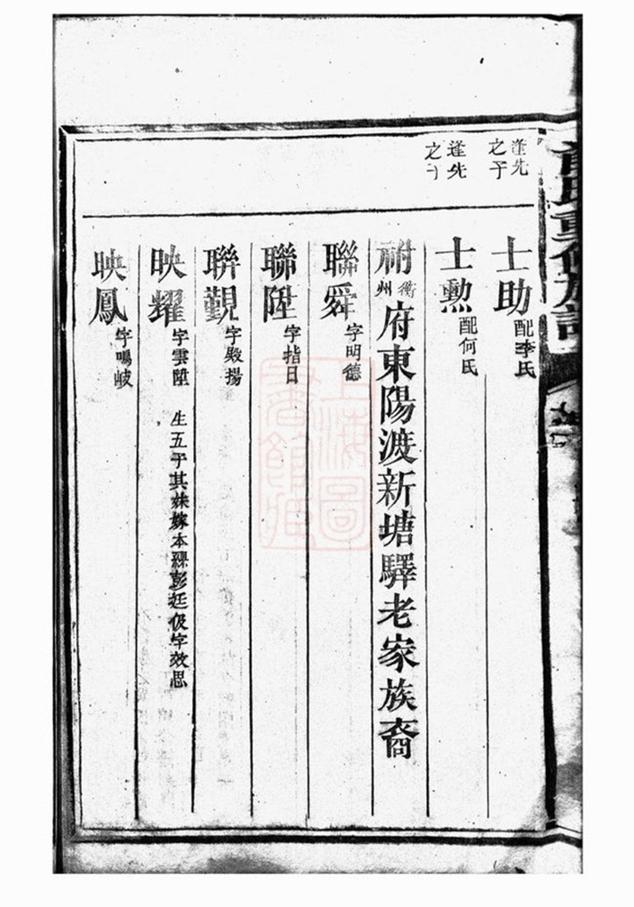 逢先
之子
士助 配李氏
逢先
之子
士勲 配何氏
祔 衡州 府東陽渡新塘驛老家族裔
聯舜 字明德
聯陞 字指日
聯覲 字毅揚
映耀 字雲陞 生五子其妹嫁本縣彭廷伋字效思
映鳳 字鳴岐
上海圖
書館藏